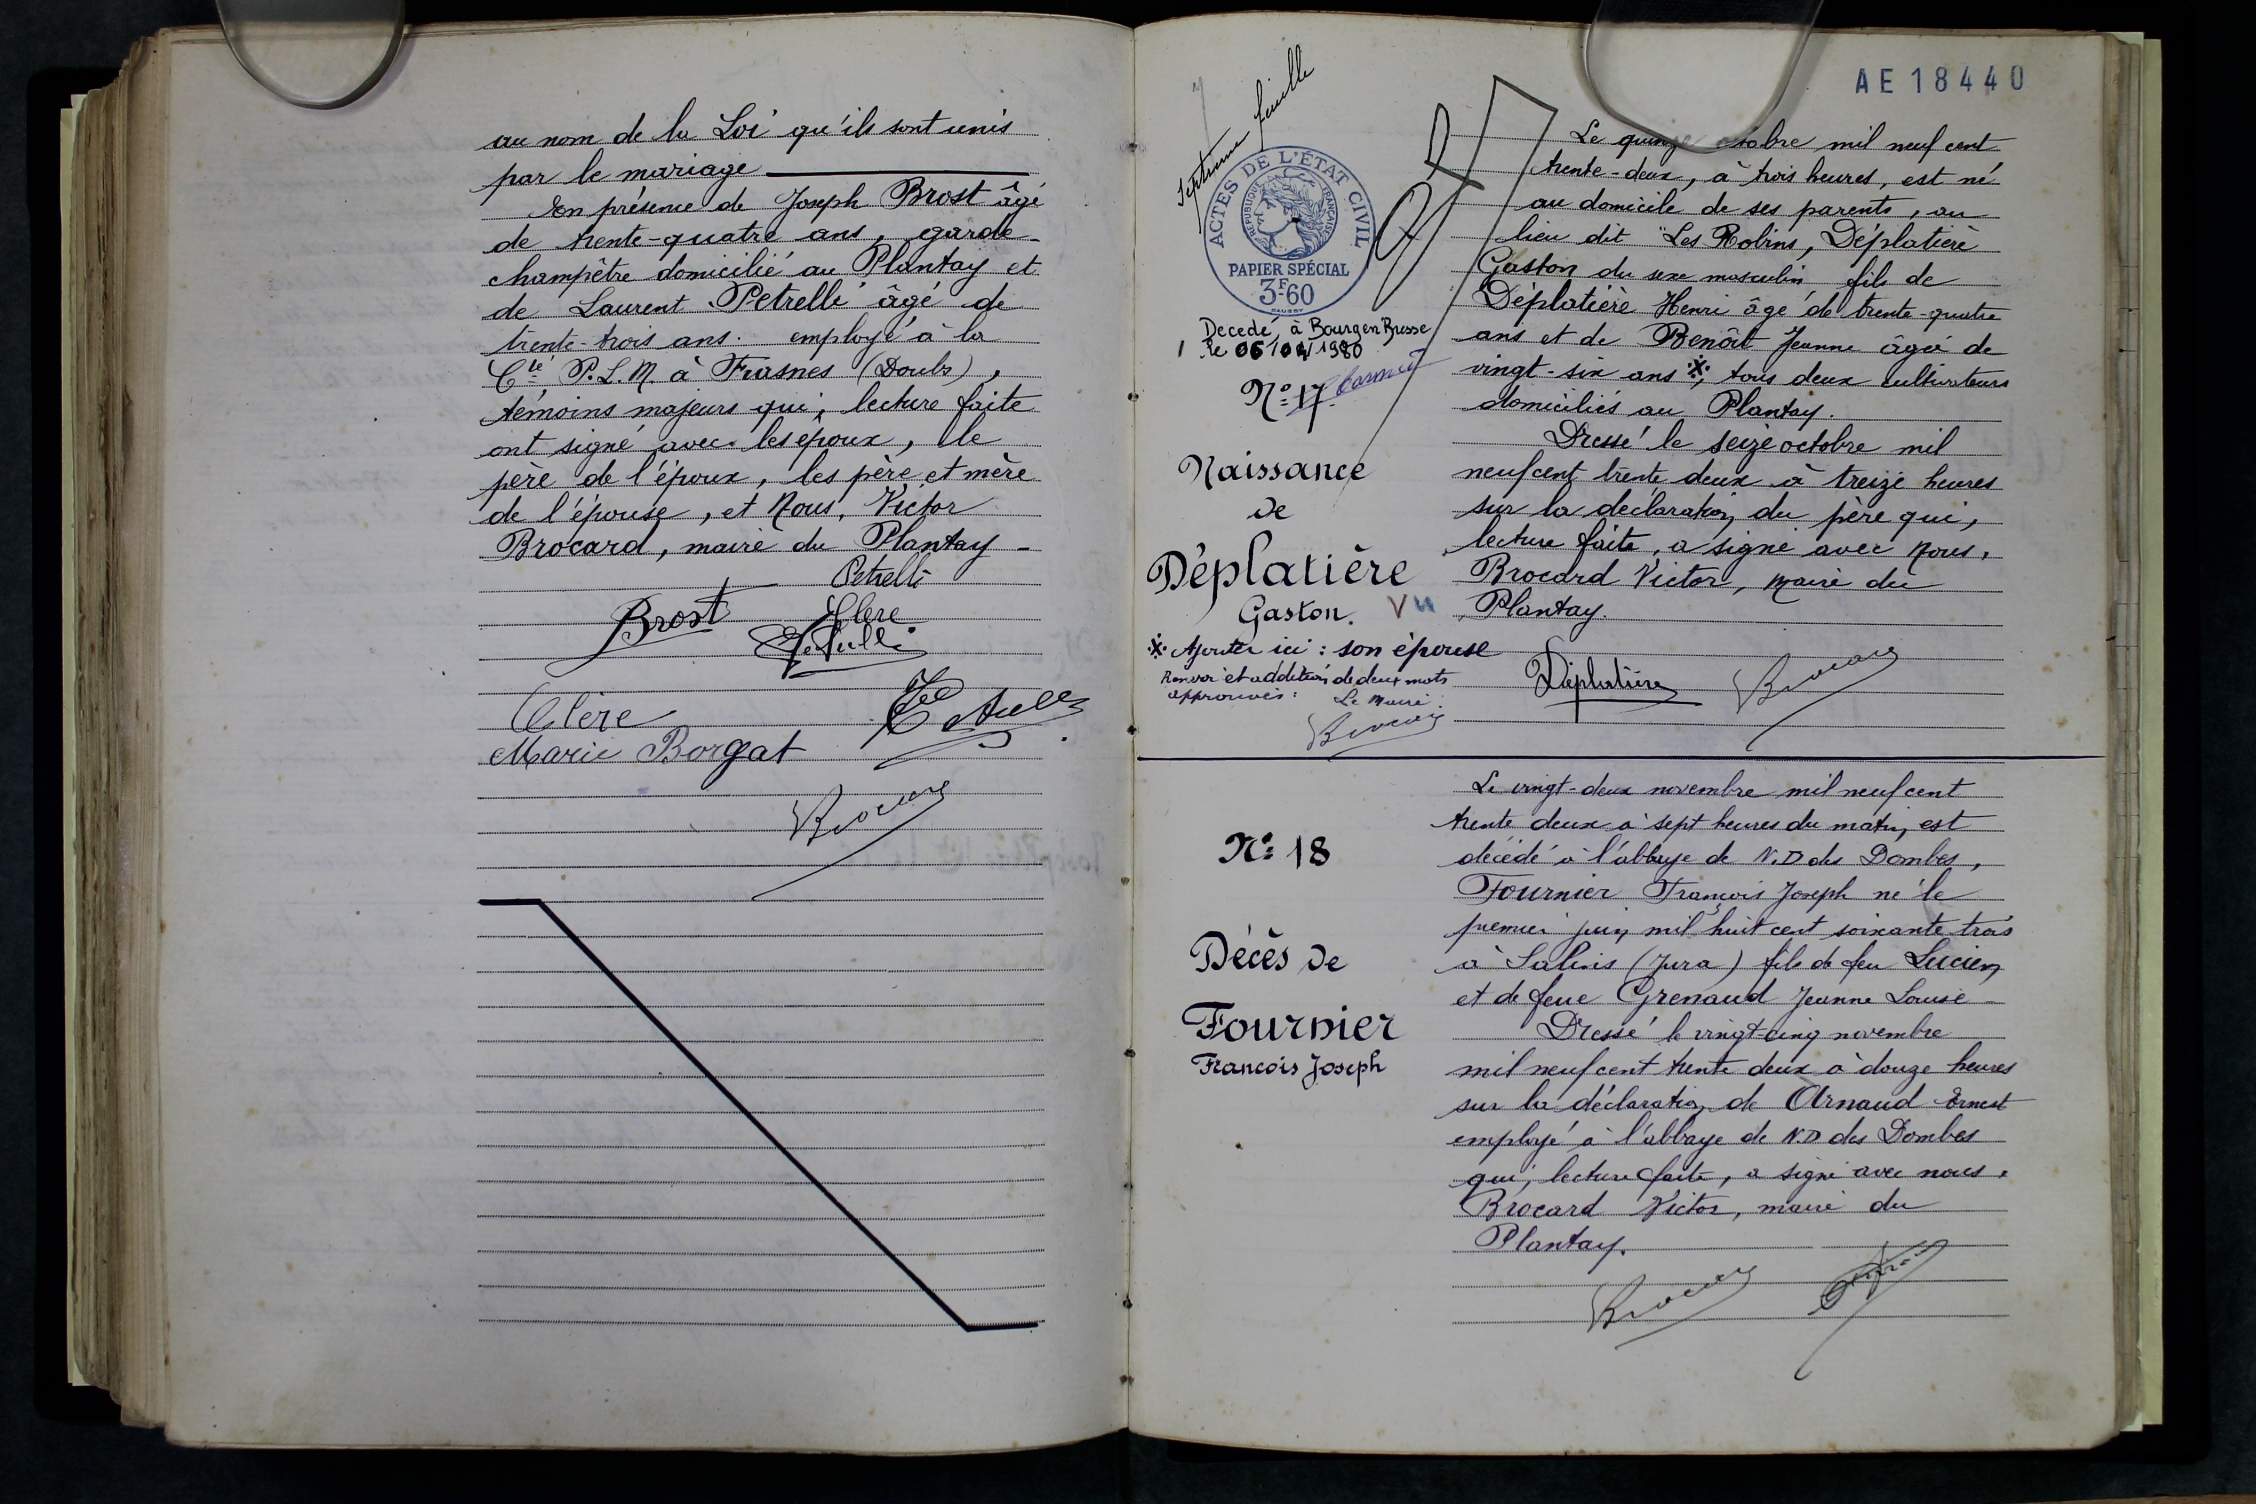 au nom de la Loi qu'ils sont unis
par le mariage
En présence de Joseph Brost âgé
de trente-quatre ans, garde-
champêtre domicilié au Plantay et
de Laurent Petrelle âgé de
trente-trois ans. employé à la
Cie P.L.M. à Frasnes (Doubs),
témoins majeurs qui, lecture faite
ont signé avec les époux, le
père de l'époux, les père et mère
de l'épouse, et Nous, Victor
Brocard, maire du Plantay -
Petrelli
Brost Clere
Clère
Marie Borgat
Brocard
AE18440
Septième feuille
ACTES DE L'ÉTAT CIVIL
RÉPUBLIQUE FRANÇAISE
PAPIER SPÉCIAL
3F60
Décédé à Bourg en Bresse
le 06/04/1980
No 17.
Naissance
de
Déplatière
Gaston. Vu
※ Ajouter ici : son épouse
Renvoi et addition de deux mots
approuvés : Le Maire.
Brocard
Le quinze octobre mil neuf cent
trente-deux, à trois heures, est né
au domicile de ses parents, au
lieu dit "Les Robins, Déplatière
Gaston du sexe masculin fils de
Déplatière Henri âgé de trente-quatre
ans et de Benôit Jeanne âgée de
vingt-six ans ※, tous deux cultivateurs
domiciliés au Plantay.
Dressé le seize octobre mil
neuf cent trente deux à treize heures
sur la déclaration du père qui,
lecture faite, a signé avec Nous,
Brocard Victor, maire du
Plantay.
Déplatière Brocard
No 18
Décès de
Fournier
Francois Joseph
Le vingt-deux novembre mil neuf cent
trente deux à sept heures du matin, est
décédé à l'abbaye de N.D des Dombes,
Fournier François Joseph né le
premier juin mil huit cent soixante trois
à Salins (Jura) fils de feu Lucien
et de feue Grenaud Jeanne Louise
Dressé le vingt-cinq novembre
mil neuf cent trente deux à douze heures
sur la déclaration de Arnaud Ernest
employé à l'abbaye de N.D des Dombes
qui, lecture faite, a signé avec nous,
Brocard Victor, maire du
Plantay.
Brocard